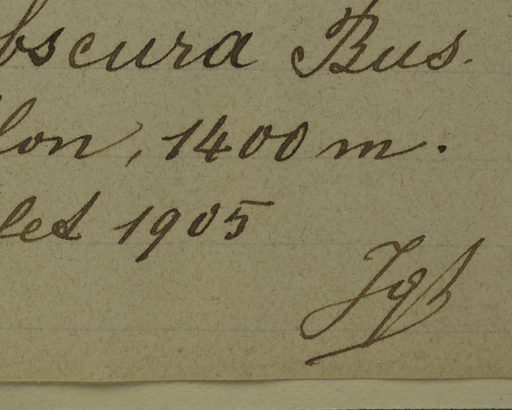 bscura Bus.
lon, 1400 m.
let 1905